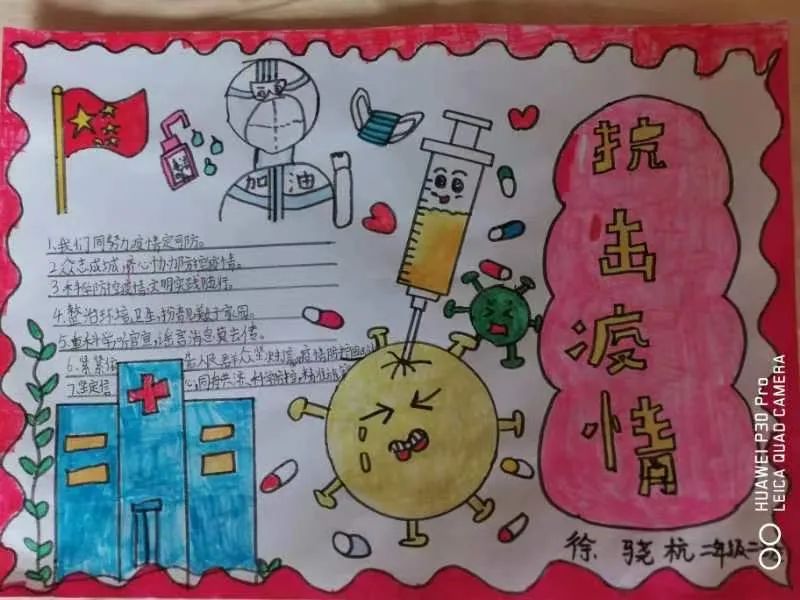 抗击疫情
加油
1.我们同努力疫情定可防。
2.众志成城,齐心协力防控疫情。
3.科学防控疫情,文明实践随行。
4.整治环境卫生,扮靓美好家园。
5.重科学,听官宣,谣言消息莫去传。
6.紧紧依 人民群众坚决打赢疫情防控阻
7.坚定信心,同舟共济,科学防控,精准施
徐 骁杭 二年级二
HUAWEI P30 Pro
LEICA QUAD CAMERA